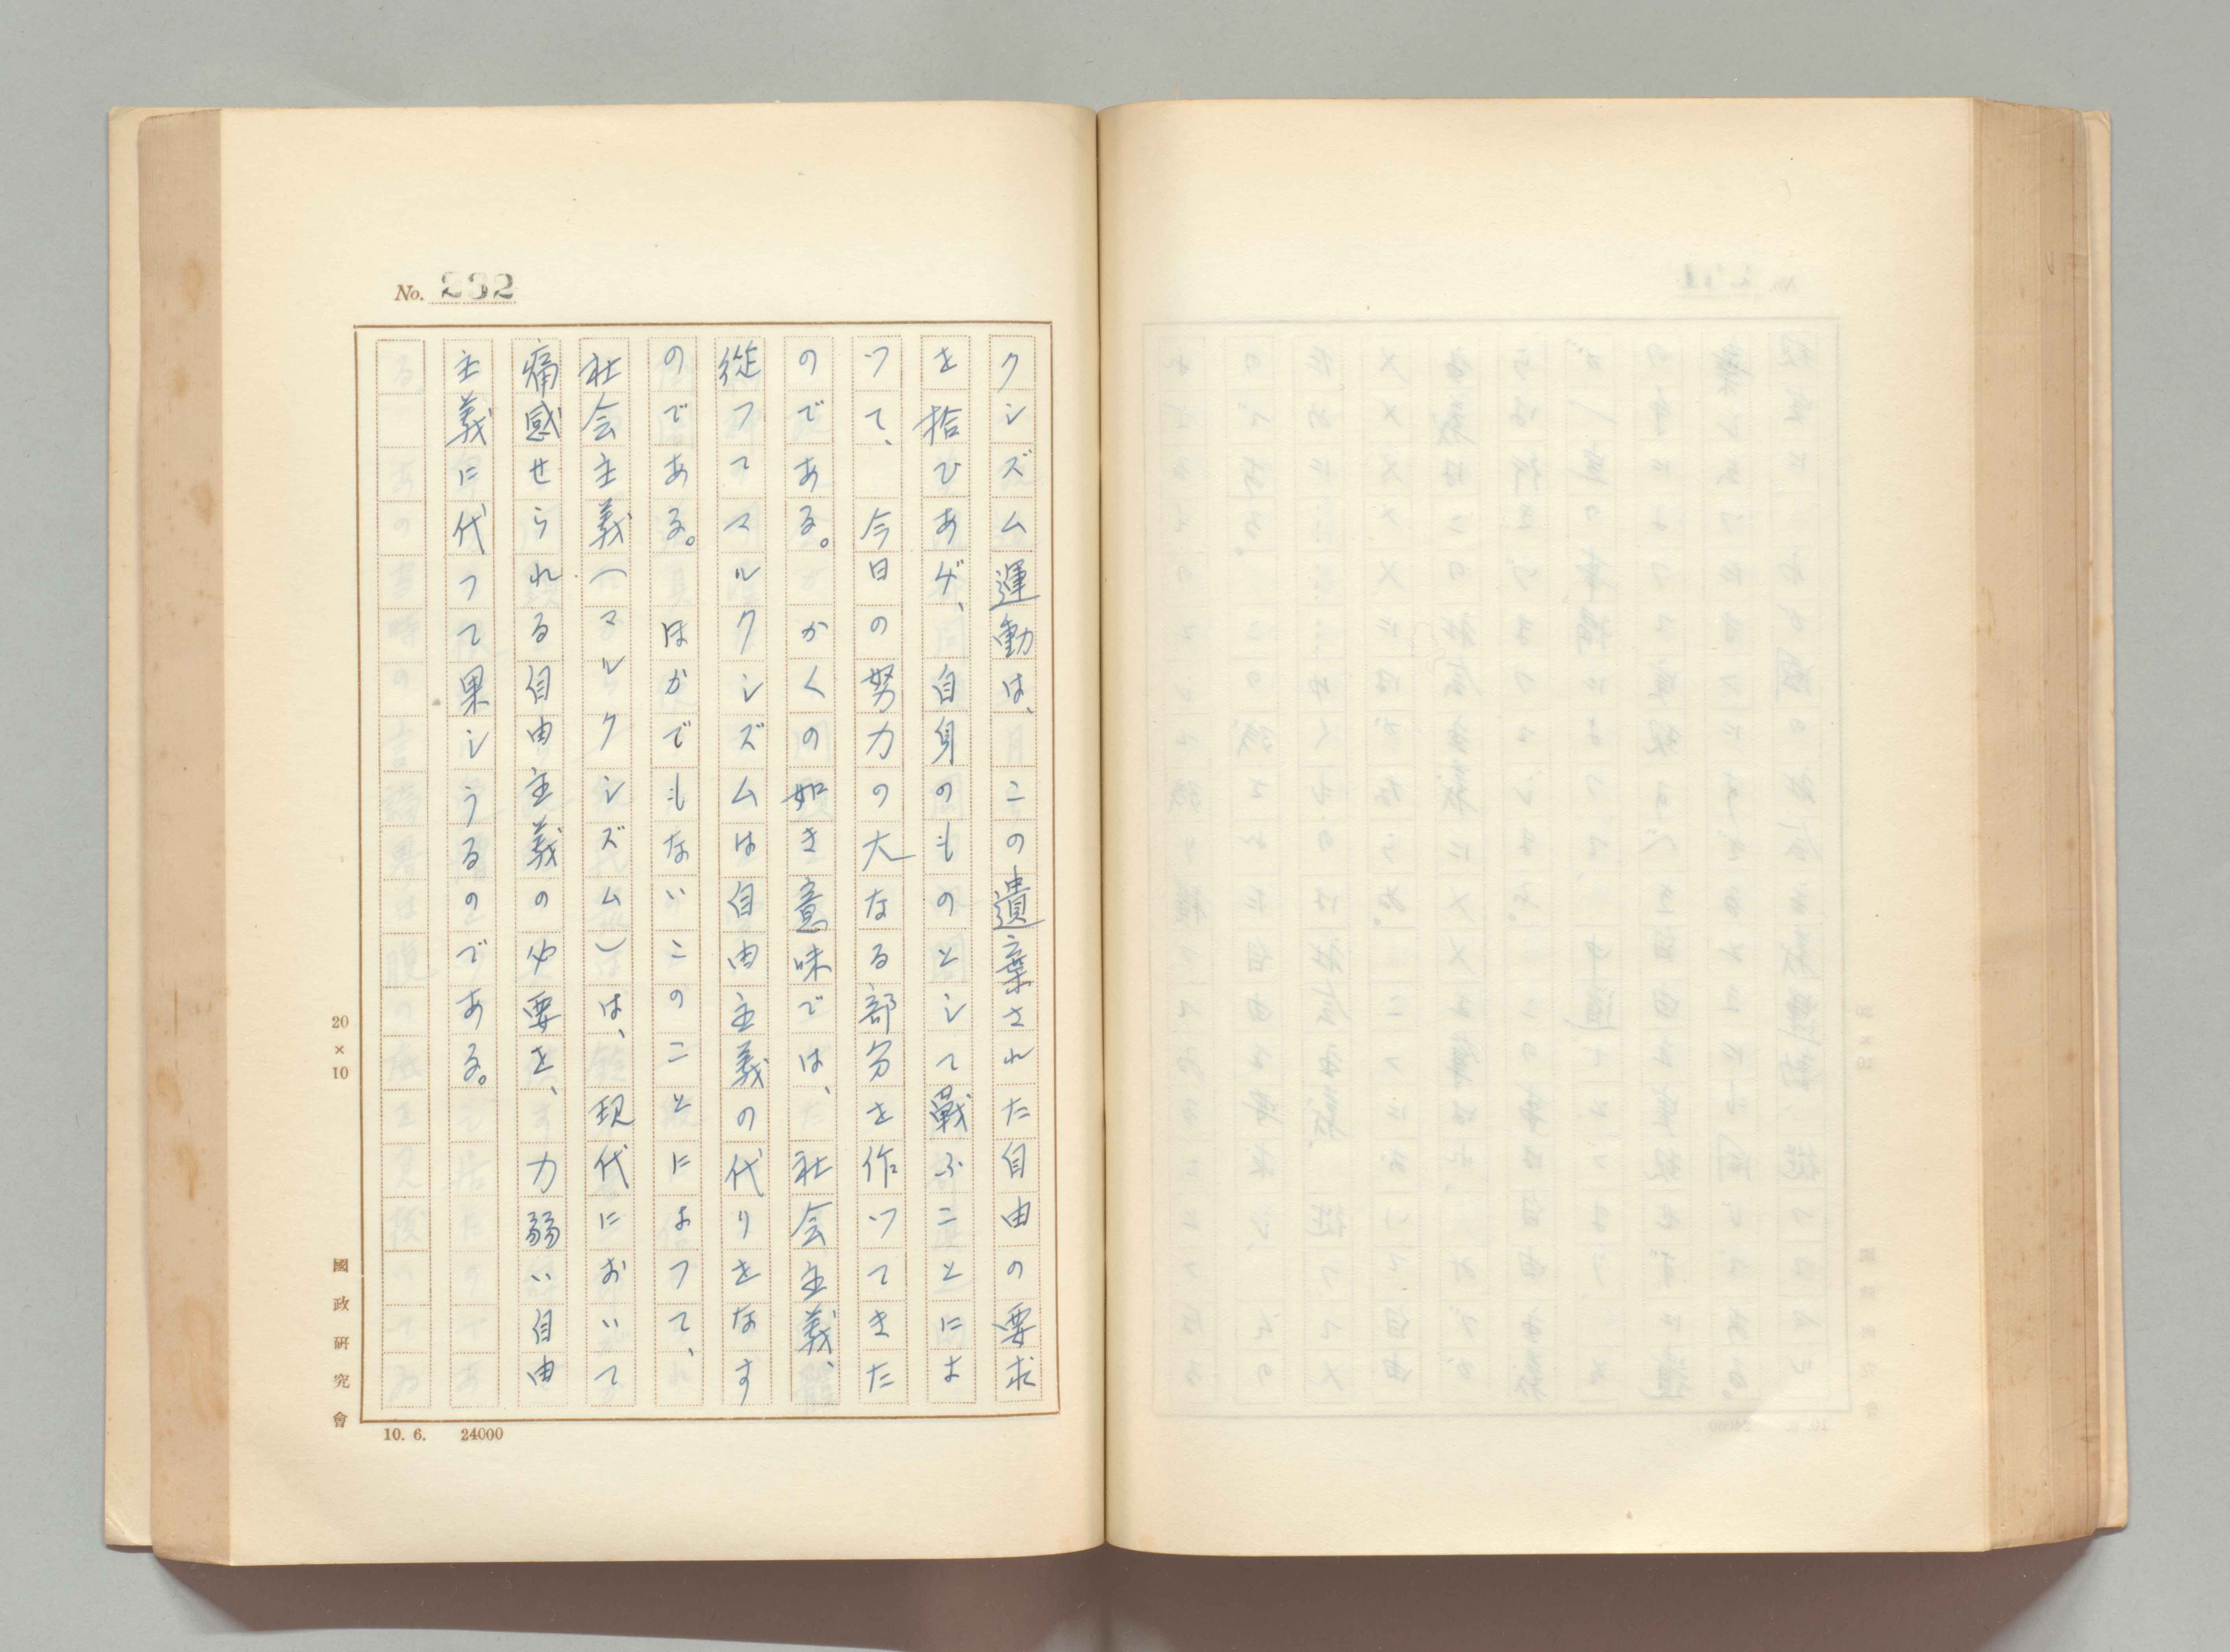 No. 232
クシズム運動は、この遺棄された自由の要求
を拾ひあげ、自身のものとして戰ふことによ
つて、今日の努力の大なる部分を作つてきた
のである。かくの如き意味では、社会主義、
従つてマルクシズムは自由主義の代りをなす
のである。ほかでもないこのことによつて、
社会主義(マルクシズム)は、現代において
痛感せられる自由主義の必要を、力弱い自由
主義に代つて果しうるのである。
20×10
國政研究會
10. 6. 24000